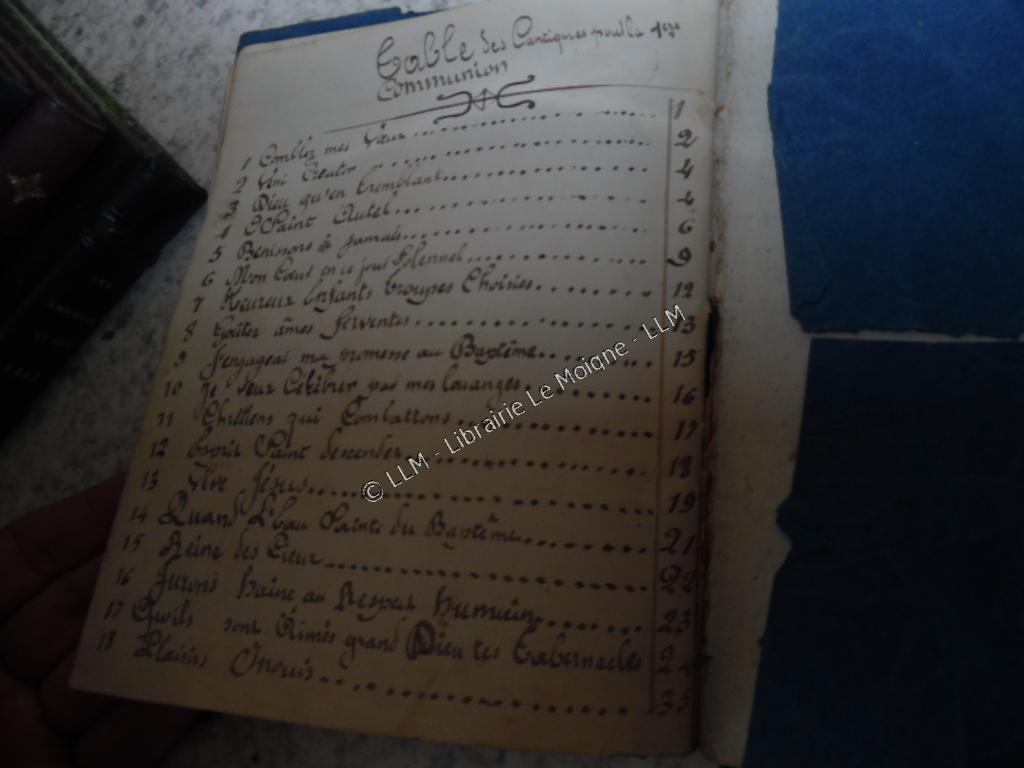 Table des Cantiques pour la 1ère
Communion
1 Comblez mes Vœux 1
2 Véni Creator 2
3 Dieu qu'en tremblant 4
4 O Saint Autel
5 Benissons à jamais 6
6 Mon Cœur en ce jour Solennel 9
7 Heureux Enfants troupes Choisies 12
8 Goûtez âmes ferventes 13
9 J'engageai ma promesse au Baptême 15
10 Je veux Célébrer par mes louanges 16
11 Chrétiens qui Combattons 17
12 Esprit Saint descendez 18
13 Vive Jésus 19
14 Quand l'Eau Sainte du Baptême 21
15 Reine des Cieux 22
16 Jurons haine au Respect humain 23
17 Qu'ils sont Aimés grand Dieu tes tabernacles
18 Plaisirs Inouis 35
© LLM - Librairie Le Moigne - LLM